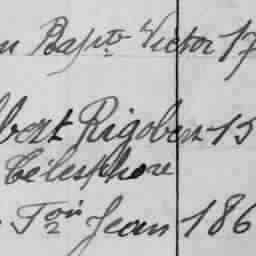 n Bapte Victor 17
bert Rigobert 15
Télesphore
Jean 186